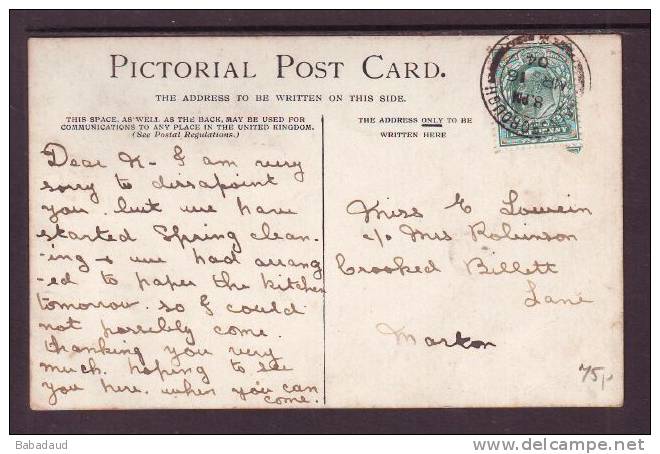 PICTORIAL POST CARD.
THE ADDRESS TO BE WRITTEN ON THIS SIDE.
THIS SPACE, AS WELL AS THE BACK, MAY BE USED FOR
COMMUNICATIONS TO ANY PLACE IN THE UNITED KINGDOM.
(See Postal Regulations.)
Dear K - I am very
sorry to dissapoint
you. but we have
started Spring clean.
-ing & we had arrang
-ed to paper the kitchen
tomorrow. so I could
not possibly come.
thanking you very
much. hoping to see
you here. when you can
come.
THE ADDRESS ONLY TO BE
WRITTEN HERE
Miss E Lowein
c/o Mrs Robinson
Crooked Billett
Lane
Marton
75,-
8.PM
AP 16
04
Babadaud
delcampe.net